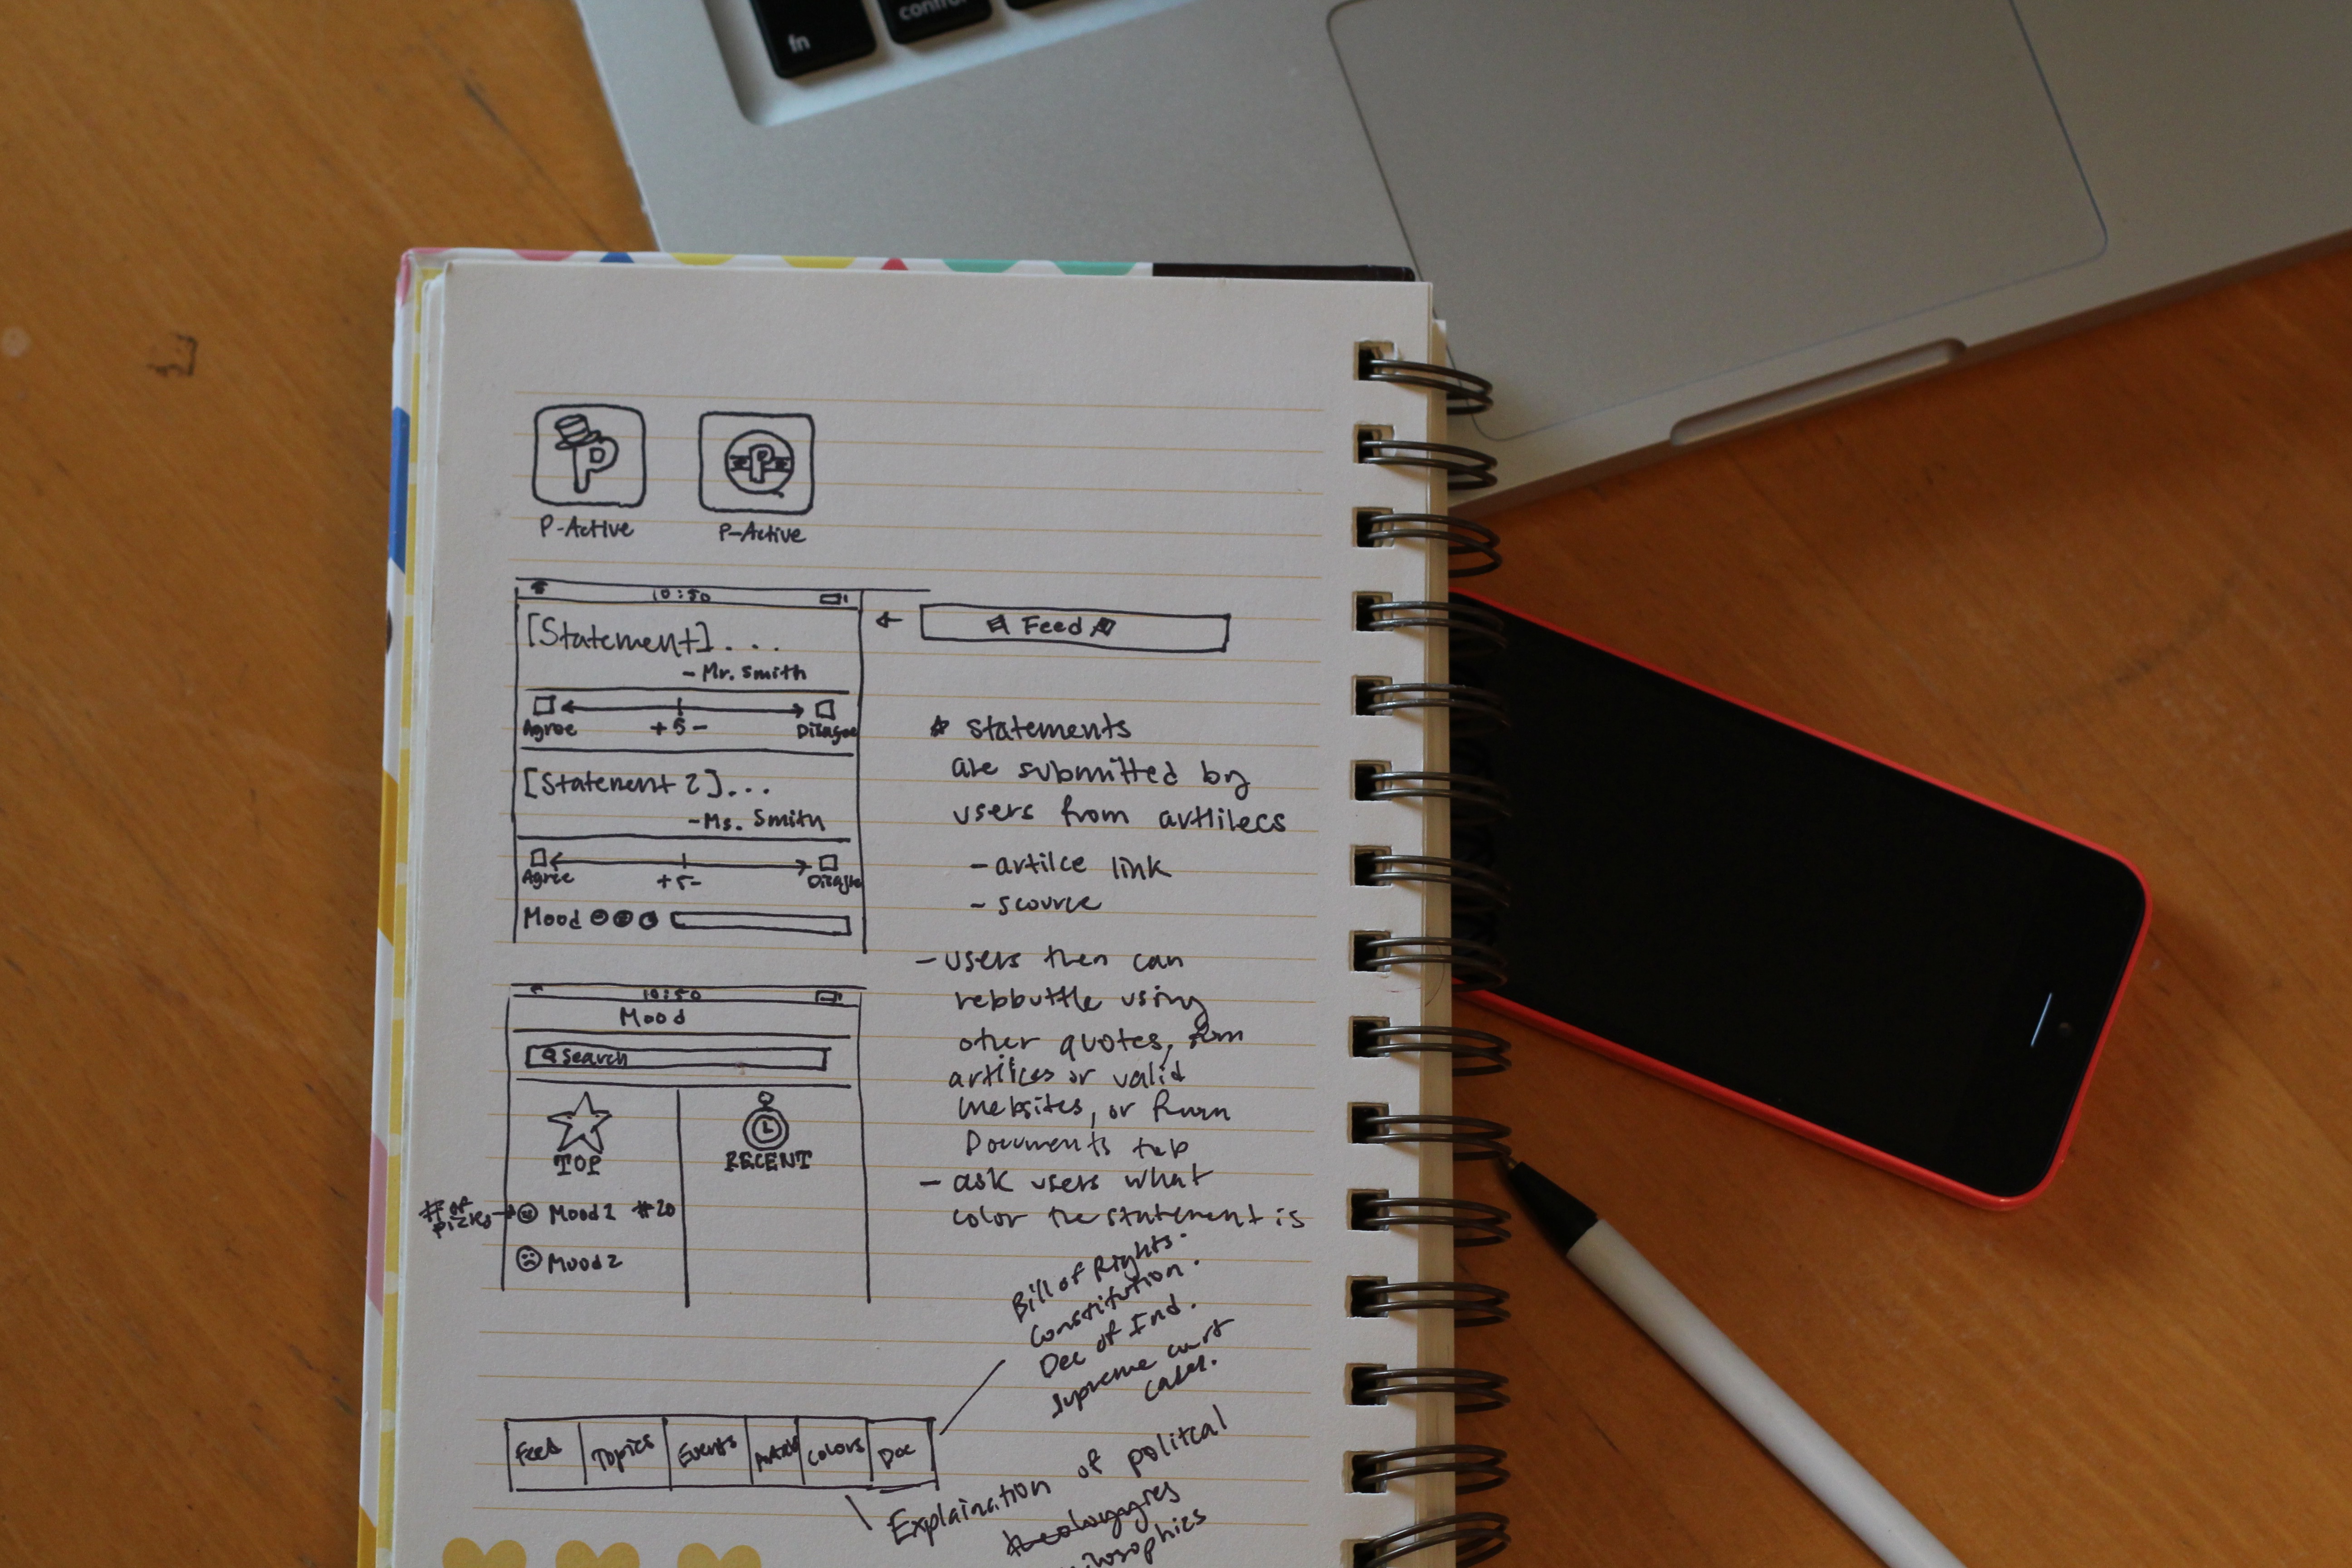 fn
control
P-Active
P-Active
10:50
[Statement]....
- Mr. Smith
Agree +5- Disagree
[Statement 2]...
-Ms. Smith
Agree +5-
Mood
Feed
* statements
are submitted by
users from arttilecs
- artilce link
- scource
- users then can
rebbuttle using
other quotes,
artilces or valid
websites, or
Documents tab
- ask users what
color the statement is
10:50
Mood
Search
TOP
RECENT
# of
picks
Mood1 #20
Mood2
Bill of Rights.
Constitution.
Dec of Ind.
Supreme court
cases.
Feed Topics Events Colors Doc
Explaination of politcal